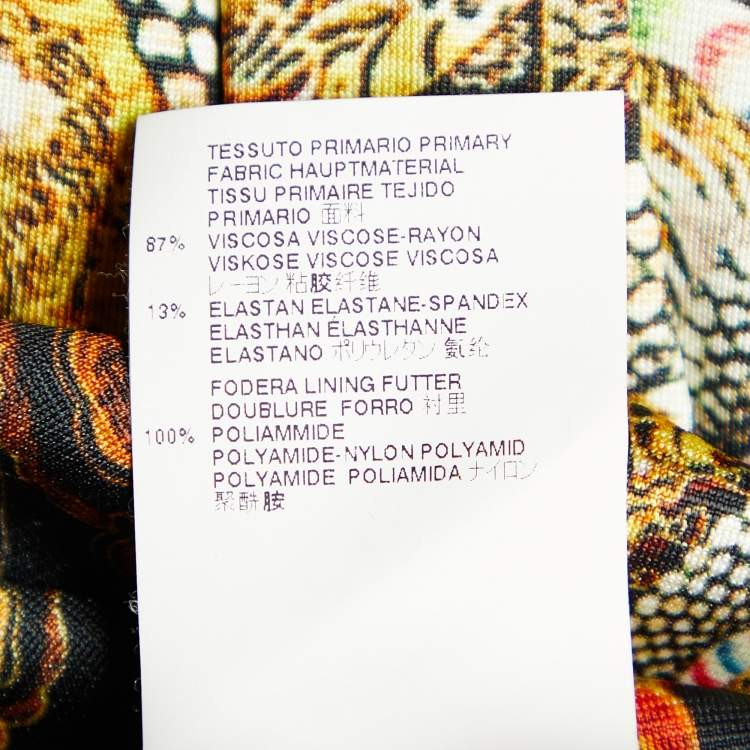 TESSUTO PRIMARIO PRIMARY
FABRIC HAUPTMATERIAL
TISSU PRIMAIRE TEJIDO
PRIMARIO 面料
87% VISCOSA VISCOSE-RAYON
VISKOSE VISCOSE VISCOSA
レーヨン 粘胶纤维
13% ELASTAN ELASTANE-SPANDEX
ELASTHAN ÉLASTHANNE
ELASTANO ポリウレタン 氨纶
FODERA LINING FUTTER
DOUBLURE FORRO 衬里
100% POLIAMMIDE
POLYAMIDE-NYLON POLYAMID
POLYAMIDE POLIAMIDA ナイロン
聚酰胺